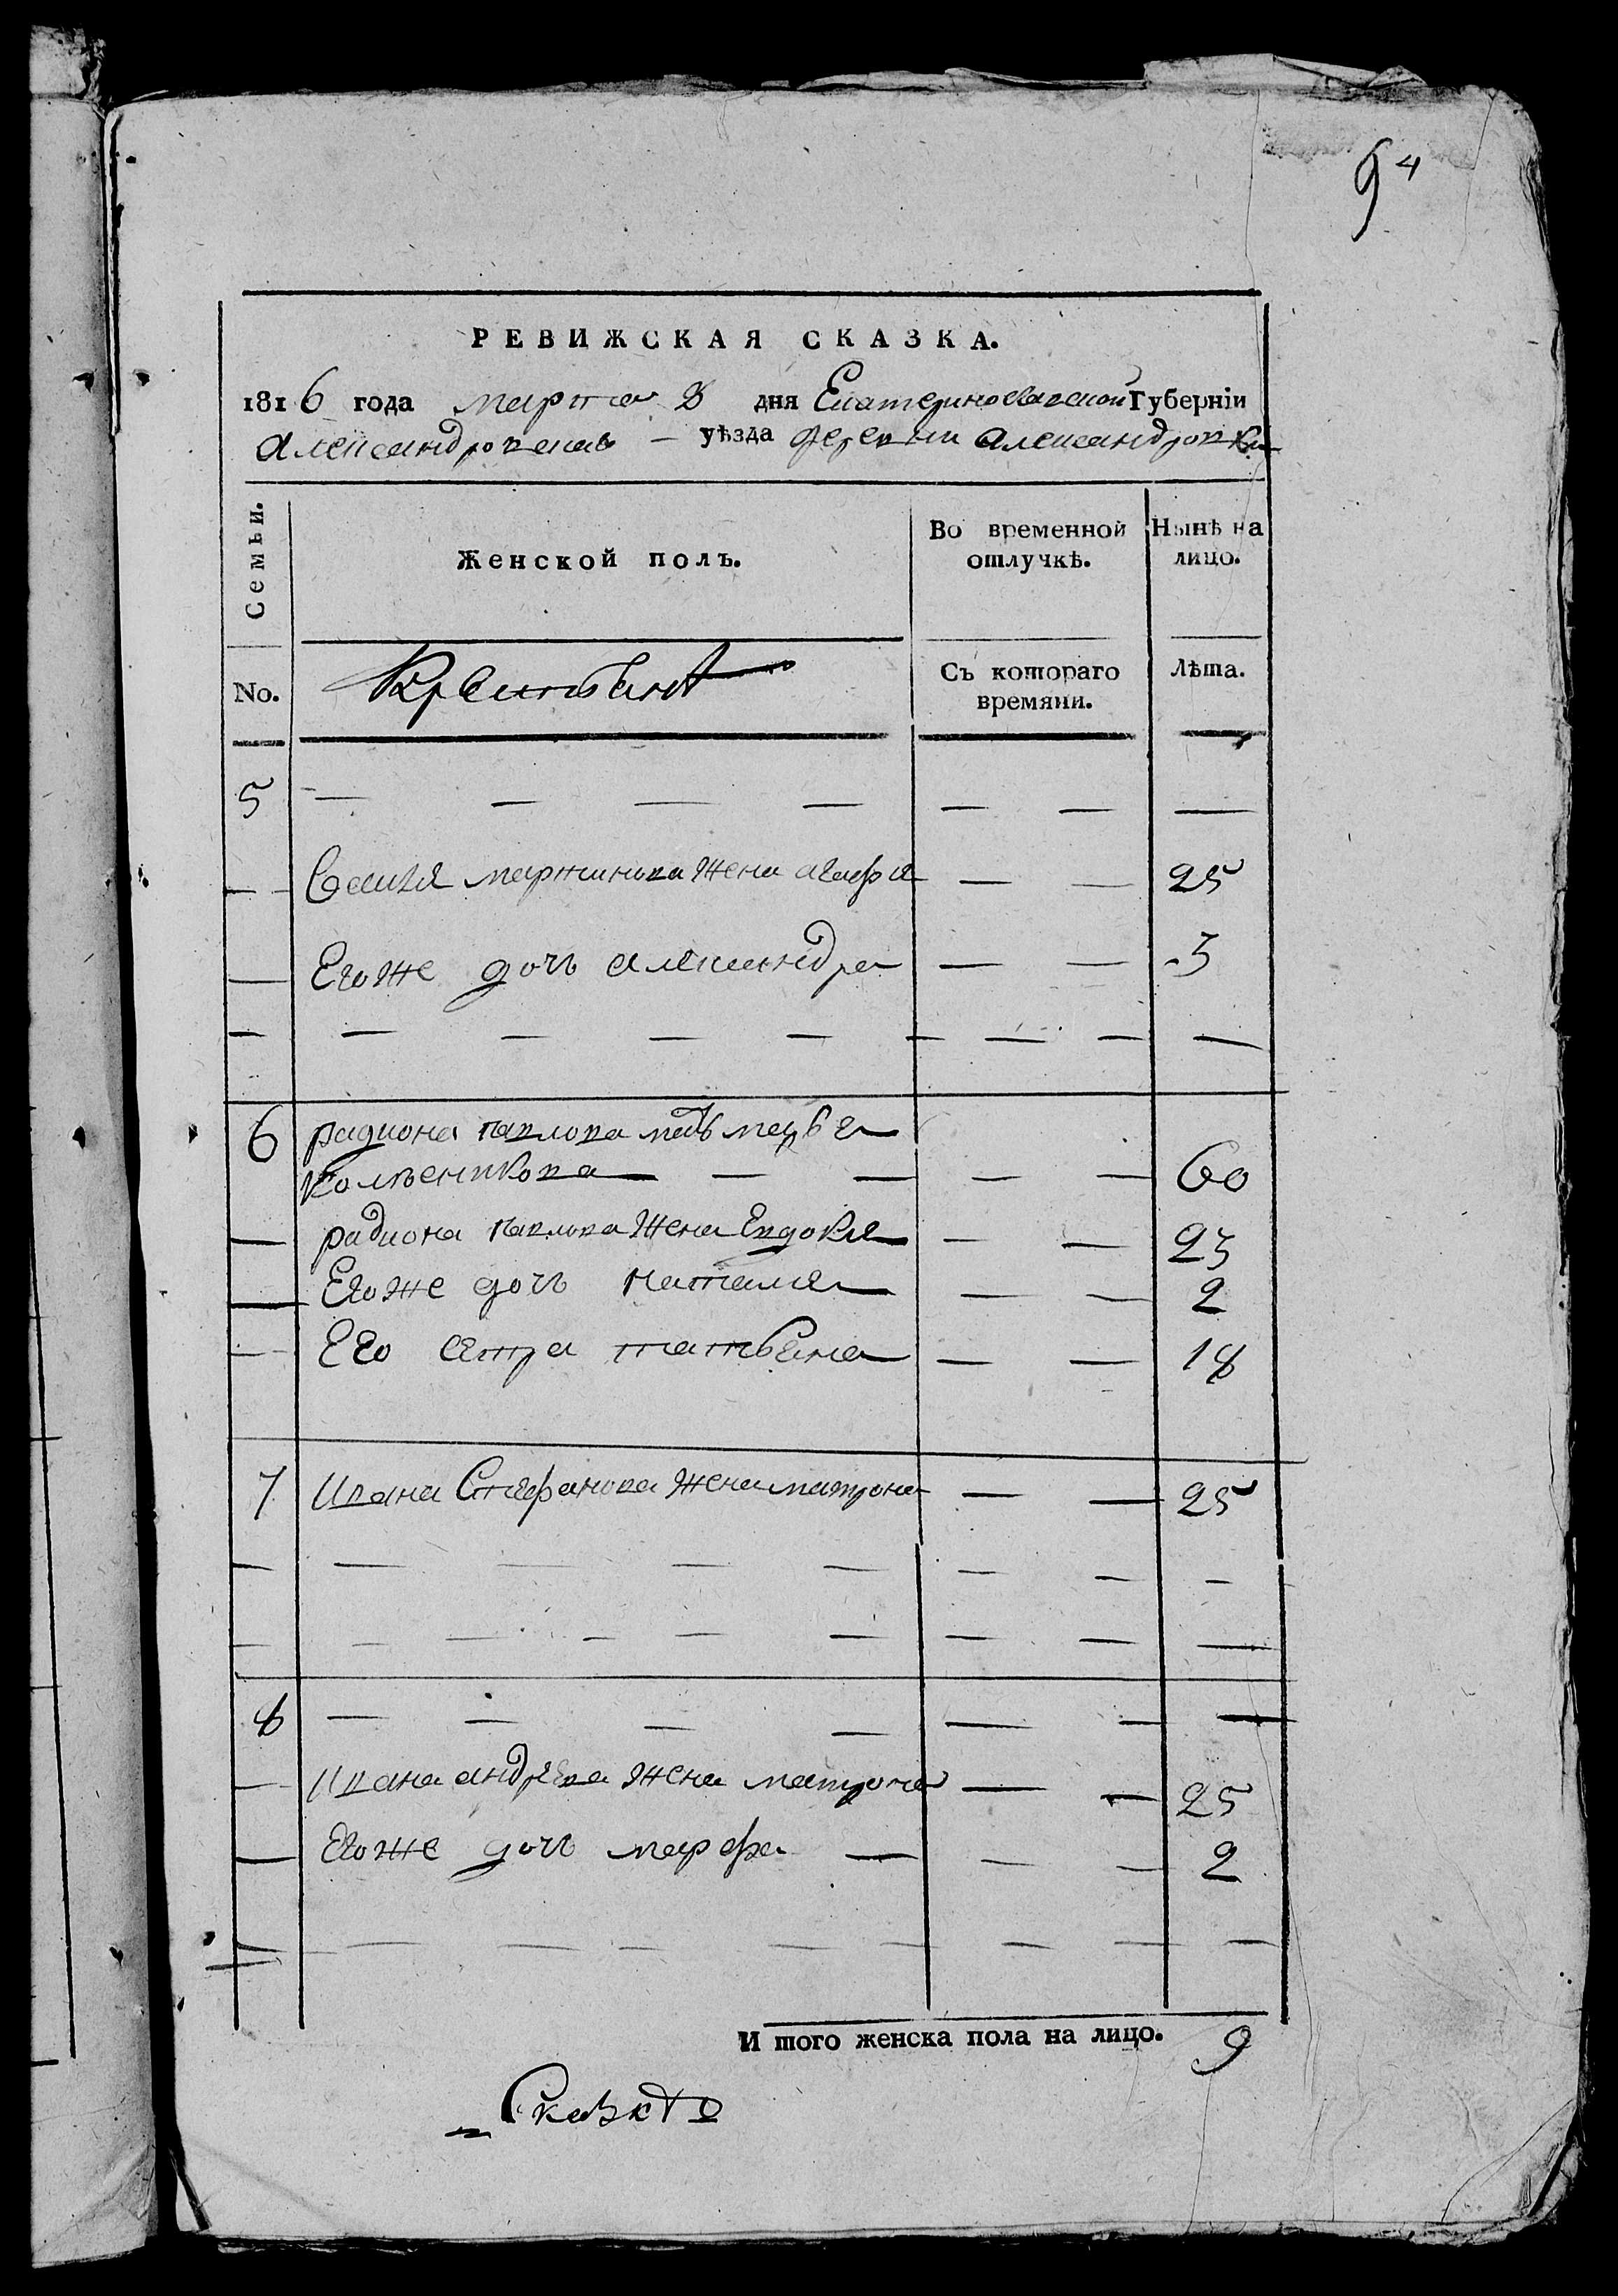 94
РЕВИЖСКАЯ СКАЗКА.
1816 года марта 8 дня Екатеринославской Губерніи
Александровскаго — уѣзда деревни Александровки
Семьи.
Женской полъ.
Во временной отлучкѣ.
Нынѣ на лицо.
No.
Крестьянѣ
Съ котораго времяни.
Лѣта.
5 — — — — — — —
— Мартинова жена агафия — — 25
— Егоже дочь александра — — 3
— — — — — — — —
6 радиона павлова мать
— — — — 60
— радиона павлова жена Евдокия — — 23
— Егоже дочь наталия — — 2
— Его сестра татьяна — — 18
7 Ивана Стефанова жена матрона — — 25
— — — — — — — —
— — — — — — — — —
8 — — — — — — —
— Ивана андреева жена матрона — — 25
— Егоже дочь марфа — — — 2
— — — — — — — — —
И того женска пола на лицо. 9